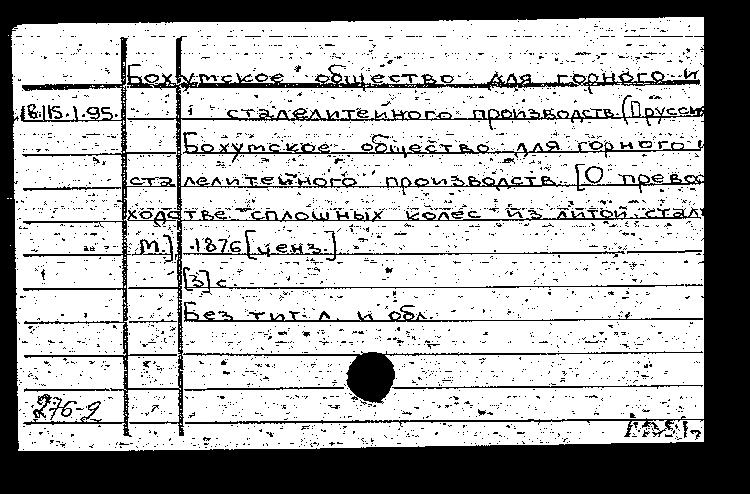 Бохумское общество для горного и
18.115.1.95. сталелитейного производств (Пруссия
Бохумское общество для горного и
сталелитейного производств [О превос
ходстве сплошных колес из литой стали
М.], 1876 [ценз.]
[3] с.
Без тит. л. и обл.
276-2